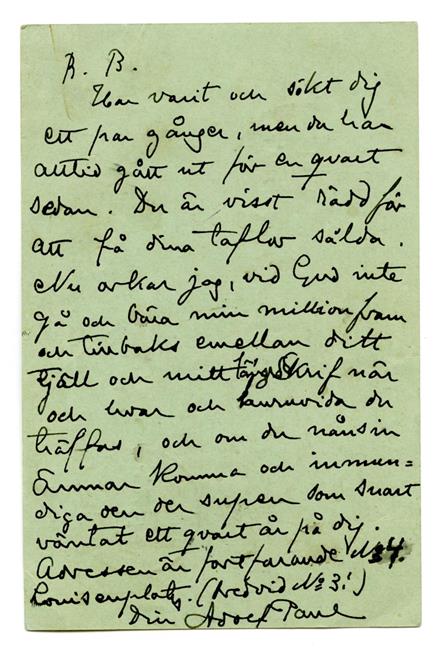 K. B.
Har varit och sökt dig
ett par gånger, men du har
alltid gått ut för en qvart
sedan. Du är visst rädd för
att få dina taflor sålda.
Nu orkar jag, vid Gud inte
gå och bära min million fram
och tillbaks emellan ditt
tjäll och mitt. Skrif när
och hvar och huruvida du
träffas, och om du nånsin
ämnar komma och inmun=
diga den der supen som snart
väntat ett qvart år på dig.
Adressen är fortfarande No 4.
Louisenplatz. (bredvid No 3!)
Din Adolf Paul